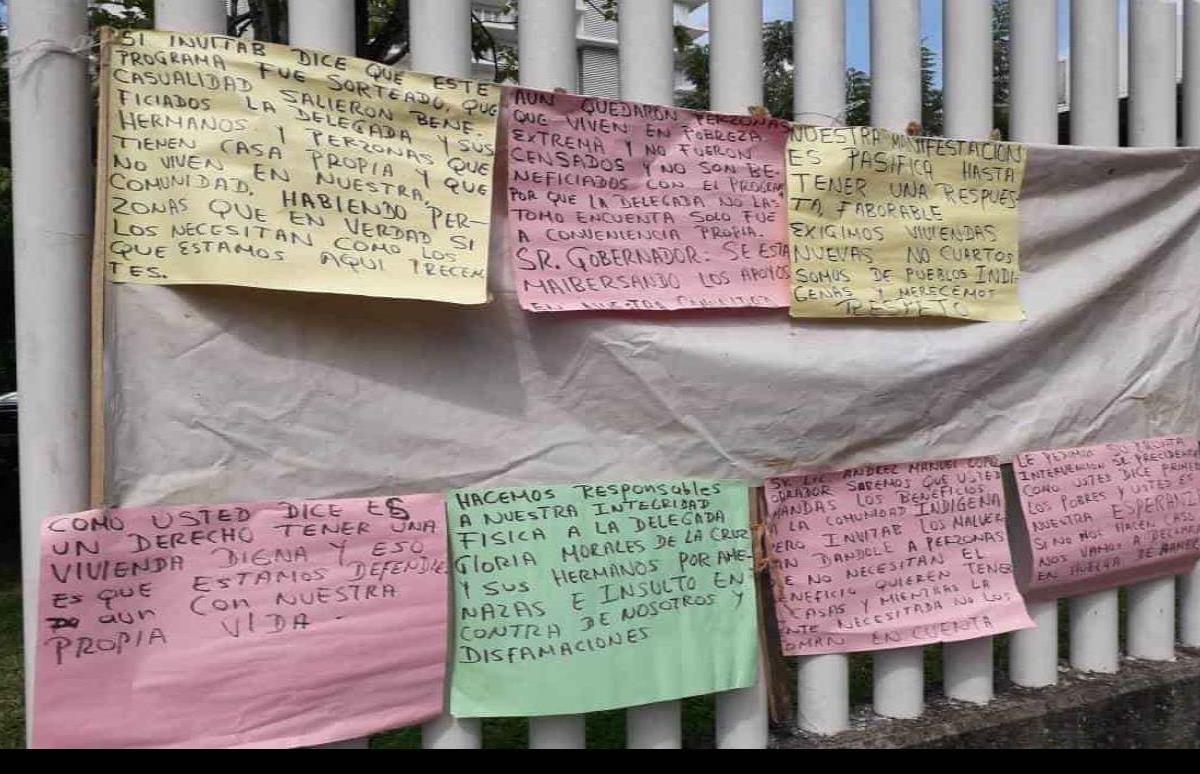 SI INVITAB DICE QUE ESTE
PROGRAMA FUE SORTEADO, QUE
CASUALIDAD SALIERON BENE-
FICIADOS LA DELEGADA Y SUS
HERMANOS Y PERZONAS QUE
TIENEN CASA PROPIA Y QUE
NO VIVEN EN NUESTRA,
COMUNIDAD. HABIENDO PER-
ZONAS QUE EN VERDAD SI
LOS NECESITAN COMO LOS
QUE ESTAMOS AQUI PRECEN
TES.
AUN QUEDARON PERZONAS
QUE VIVEN EN POBREZA
EXTREMA Y NO FUERON
CENSADOS Y NO SON BE-
NEFICIADOS CON EL PROGRA
POR QUE LA DELEGADA NO LAS
TOMO ENCUENTA SOLO FUE
A CONVENIENCIA PROPIA.
SR. GOBERNADOR: SE ESTA
MAIBERSANDO LOS APOYOS
EN NUESTRA
NUESTRA MANIFESTACION
ES PASIFICA HASTA
TENER UNA RESPUES
TA, FABORABLE
EXIGIMOS VIVIENDAS
NUEVAS NO CUARTOS
SOMOS DE PUEBLOS INDI-
GENAS Y MERECEMOS
RESPETO
COMO USTED DICE ES
UN DERECHO TENER UNA
VIVIENDA DIGNA Y ESO
ES QUE ESTAMOS DEFENDIE
aun CON NUESTRA
PROPIA VIDA.
HACEMOS Responsables
A NUESTRA INTEGRIDAD
FISICA A LA DELEGADA
GLORIA MORALES DE LA CRUZ
Y SUS HERMANOS POR AME-
NAZAS E INSULTO EN
CONTRA DE NOSOTROS Y
DISFAMACIONES
SR. LIC. ANDREZ MANUEL LOPE
OBRADOR SABEMOS QUE USTED
MANDAS LOS BENEFICIOS
A LA COMUNIDAD INDIGENA
PERO INVITAB LOS MALVER
AN DANDOLE A PERZONAS
E NO NECESITAN EL
ENEFICIO QUIEREN TENER
CASAS Y MIENTRAS LA
NTE NECESITADA NO LOS
OMAN EN CUENTA
LE PEDIMOS SU PRONTA
INTERVENCION SR PRECIDENTE
COMO USTED DICE PRIMERO
LOS POBRES Y USTED ES
NUESTRA ESPERANZ
SI NO NOS HACEN CASO
NOS VAMOS A DECLAR
EN HUELGA DE HAMBRE